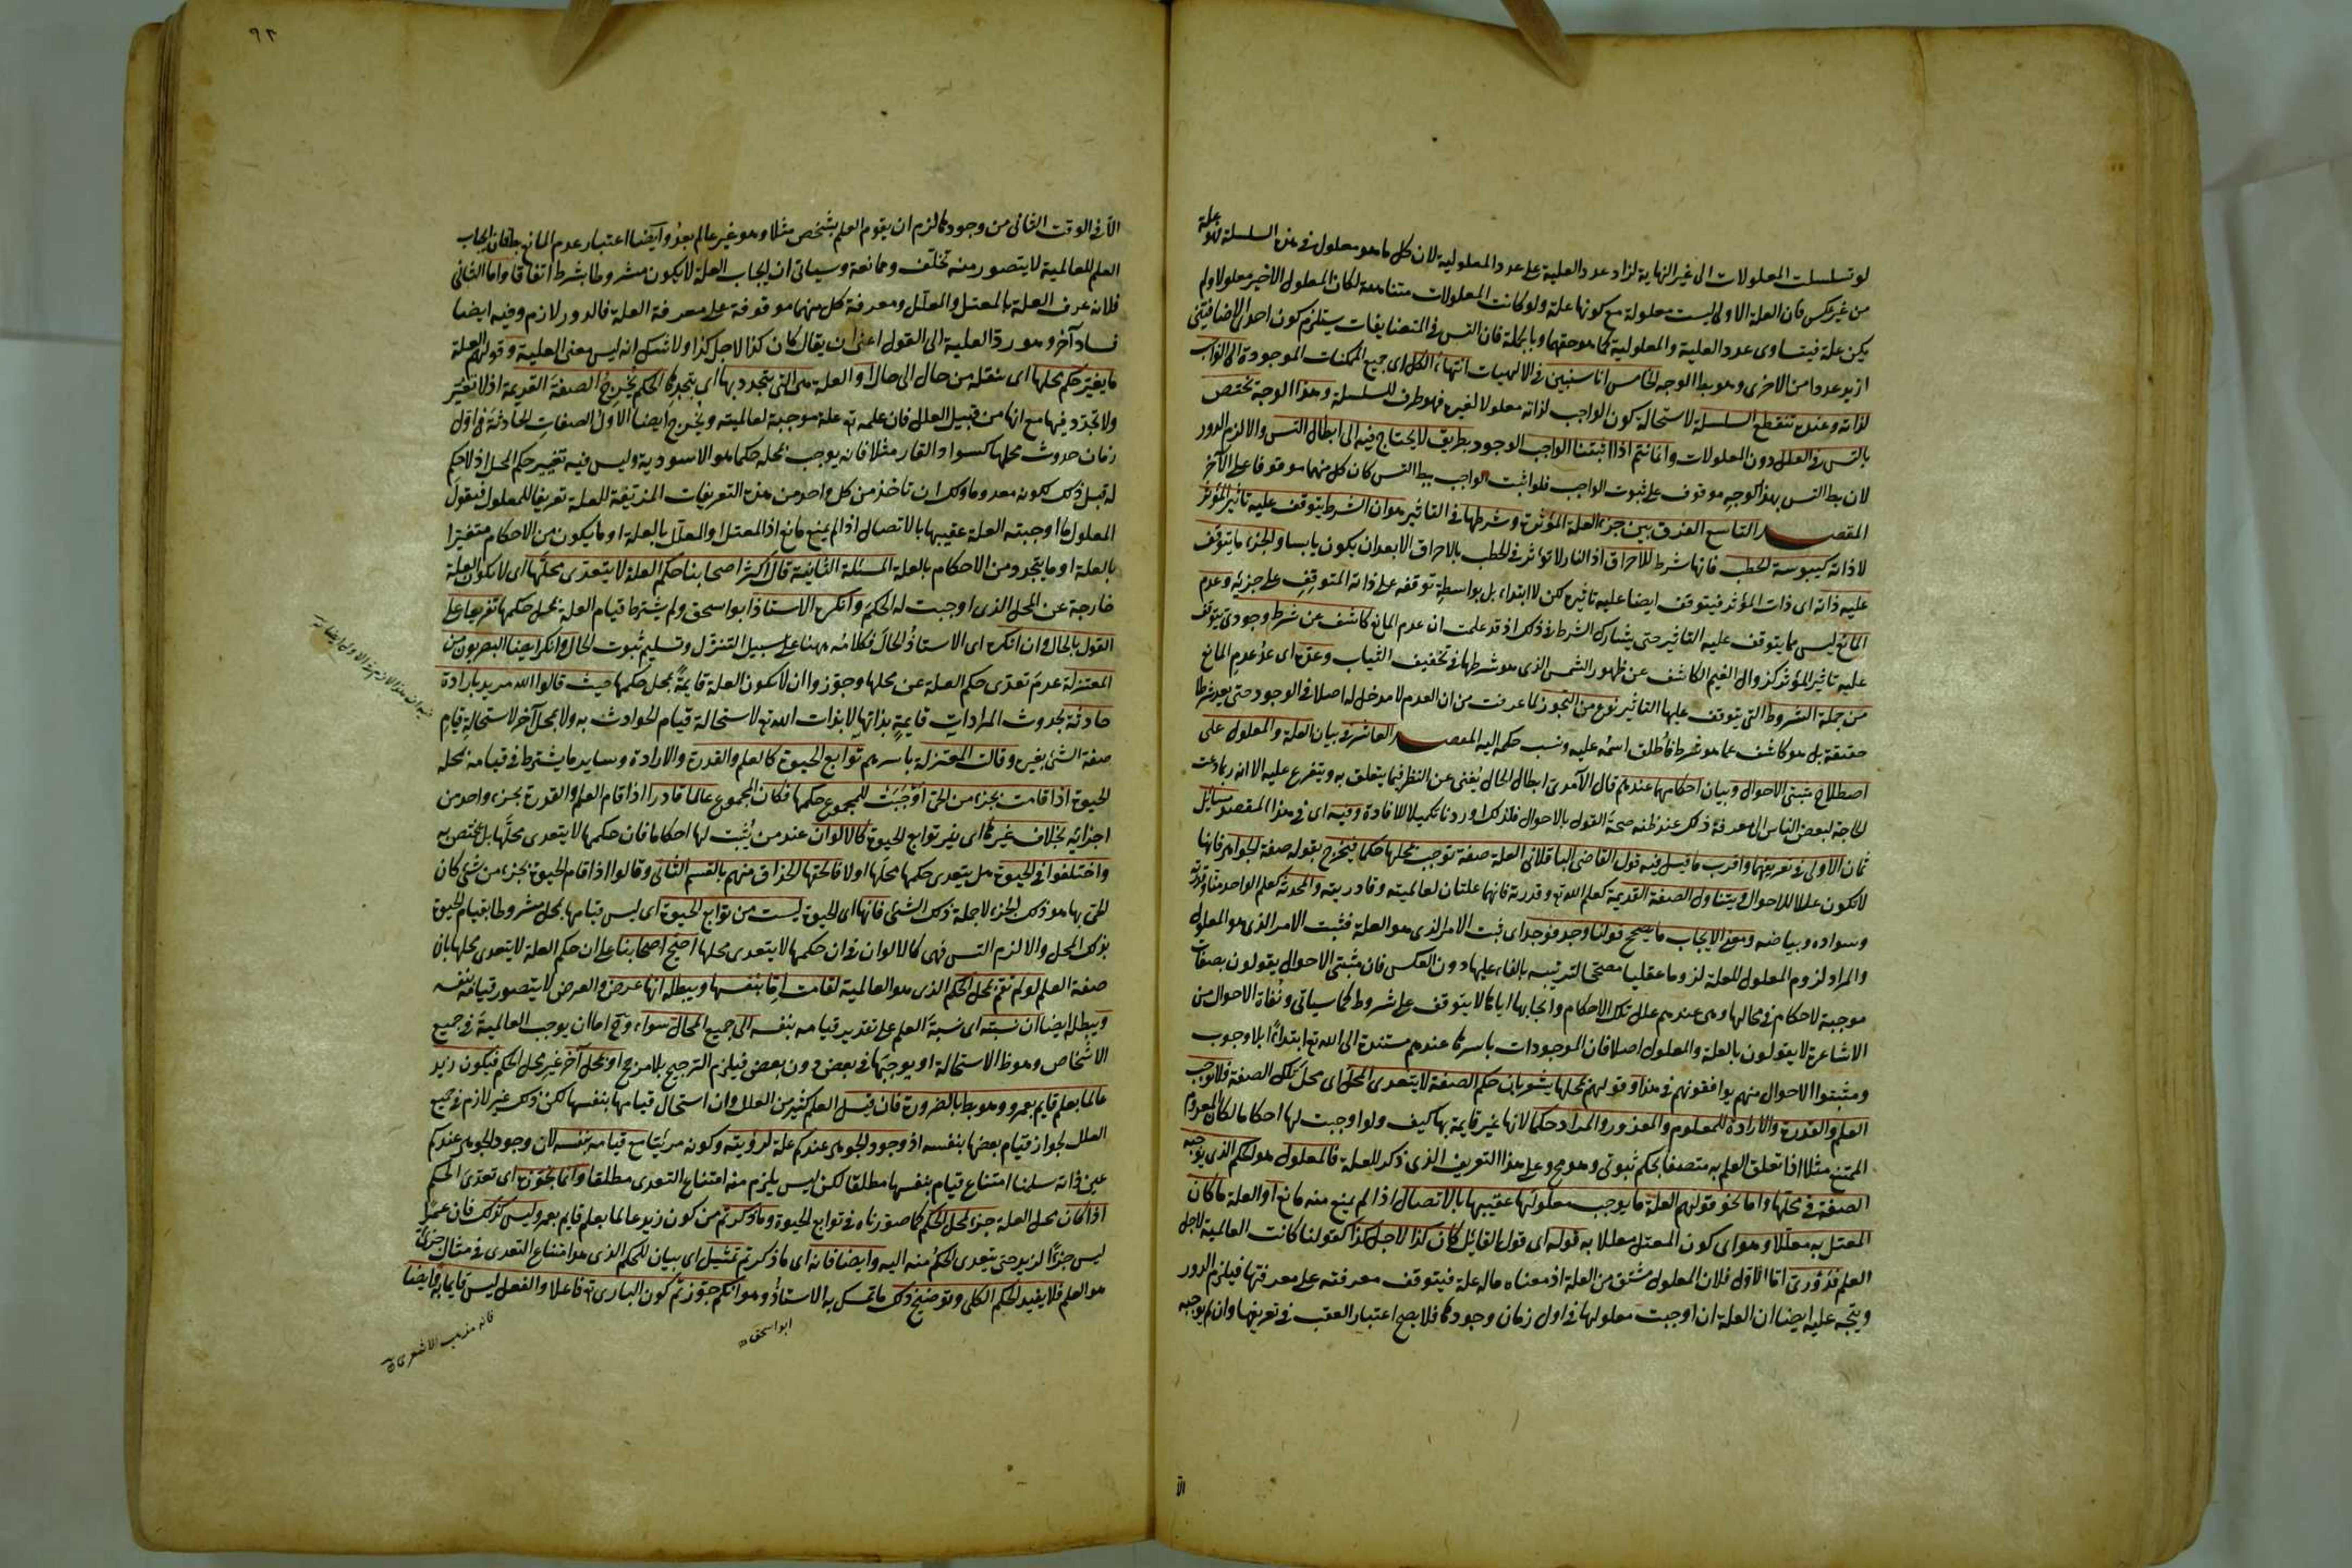 لو تسلسلت المعلولات الى غير النهاية لزاد عدد العلية على عدد المعلولية لان كل ما هو معلول فى هذه السلسلة فهو علة
من غير عكس فان العلة الاولى ليست معلولة مع كونها علة ولو كانت المعلولات متناهية لكان المعلول الاخير معلولا ولم
يكن علة فيتساوى عدد العلية والمعلولية كما هو حقهما وبالجملة فان التس فى المتضايفات يستلزم كون احدى الاضافيتين
ازيد عددا من الاخرى وهو بط الوجه الخامس انا سنبين فى الالهيات انتهاء الكل اى جميع الممكنات الموجودة الى الواجب
لذاته وعنده تنقطع السلسلة لاستحالة كون الواجب لذاته معلولا لغيره فهو طرف للسلسلة وهذا الوجه يختص
بالتس فى العلل دون المعلولات وانما يتم اذا اثبتنا الواجب الوجود بطريق لا يحتاج فيه الى ابطال التس والا لزم الدور
لان بط التس بهذا الوجه موقوف على ثبوت الواجب فلو اثبت الواجب ببط التس كان كل منهما موقوفا على الآخر
المقصد التاسع الفرق بين جزء العلة المؤثرة وشرطها فى التاثير هو ان الشرط يتوقف عليه تاثير المؤثر
لا ذاته كيبوسة الحطب فانها شرط للاحراق اذ النار لا تؤثر فى الحطب بالاحراق الا بعد ان يكون يابسا والجزء ما يتوقف
عليه ذاته اى ذات المؤثر فيتوقف ايضا عليه تاثيره لكن لا ابتداء بل بواسطة توقفه على ذاته المتوقف على جزئه وعدم
المانع ليس مما يتوقف عليه التاثير حتى يشارك الشرط فى ذلك اذ قد علمت ان عدم المانع كاشف عن شرط وجودى يتوقف
عليه تاثير المؤثر كزوال الغيم الكاشف عن ظهور الشمس الذى هو شرطها فى تخفيف الثياب وعده اى عد عدم المانع
من جملة الشروط التى يتوقف عليها التاثير نوع من التجوز لما عرفت من ان العدم لا مدخل له اصلا فى الوجود حتى يعد شرطا
حقيقة بل هو كاشف عما هو شرط فاطلق اسمه عليه ونسب حكمه اليه المقصد العاشر فى بيان العلة والمعلول على
اصطلاح مثبتى الاحوال وبيان احكامهما عندهم قال الآمدى ابطال الحال يغنى عن النظر فيما يتعلق به ويتفرع عليه الا انه ربما دعت
الحاجة لبعض الناس الى معرفة ذلك عند ظنه صحة القول بالاحوال فلذلك اوردناه تكميلا للافادة وفيه اى فى هذا المقصد مسائل
ثمان الاولى فى تعريفهما واقرب ما قيل فيه قول القاضى الباقلانى العلة صفة توجب لمحلها حكما فيخرج بقوله صفة الجواهر فانها
لا تكون عللا للاحوال ويتناول الصفة القديمة كعلم الله تع وقدرته فانهما علتان لعالميته وقادريته والمحدثة كعلم الواحد منا وقدرته
وسواده وبياضه ومعنى الايجاب ما يصحح قولنا وجد فوجد اى ثبت الامر الذى هو العلة فثبت الامر الذى هو المعلول
والمراد لزوم المعلول للعلة لزوما عقليا مصححا لترتيبه بالفاء عليها دون العكس فان مثبتى الاحوال يقولون بصفات
موجبة لاحكام فى محالها وهى عندهم علل تلك الاحكام وايجابها اياها لا يتوقف على شروط كما سياتى ونفاة الاحوال من
الاشاعرة لا يقولون بالعلة والمعلول اصلا فان الموجودات باسرها عندهم مستندة الى الله تع ابتداء بلا وجوب
ومثبتوا الاحوال منهم يوافقونهم فى هذا وقولهم لمحلها يشعر بان حكم الصفة لا يتعدى المحل اى محل تلك الصفة فلا توجب
العلم والقدرة والارادة للمعلوم والمقدور والمراد حكما لانها غير قايمة بها كيف ولو اوجبت لها احكاما لكان المعدوم
الممتنع مثلا اذا تعلق العلم به متصفا بحكم ثبوتى وهو مح وعلى هذا التعريف الذى ذكر للعلة فالمعلول هو الحكم الذى يوجبه
الصفة فى محلها واما نحو قولهم العلة ما يوجب معلولها عقيبها بالاتصال اذا لم يمنع منه مانع او العلة ما كان
المعتل به معللا وهو اى كون المعتل معللا به قوله اى قول القائل كان كذا لاجل كذا كقولنا كانت العالمية لاجل
العلم فدورى اما الاول فلان المعلول مشتق من العلة اذ معناه ما له علة فيتوقف معرفته على معرفتها فيلزم الدور
ويتجه عليه ايضا ان العلة ان اوجبت معلولها فى اول زمان وجودها فلا يصح اعتبار العقب فى تعريفها وان لم يوجبه
الا
٩٢
الا فى الوقت الثانى من وجودها لزم ان يقوم العلم بشخص مثلا وهو غير عالم بعد وايضا اعتبار عدم المانع بط فان ايجاب
العلم للعالمية لا يتصور منه تخلف وممانعة وسياتى ان ايجاب العلة لا يكون مشروطا بشرط اتفاقا واما الثانى
فلانه عرف العلة بالمعتل والمعلل ومعرفة كل منهما موقوفة على معرفة العلة فالدور لازم وفيه ايضا
فساد آخر وهو رد العلية الى القول اعنى ان يقال كان كذا لاجل كذا ولا شك انه ليس معنى العلية وقولهم العلة
ما يغير حكم محلها اى ينقله من حال الى حال او العلة هى التى يتجدد بها اى بتجددها الحكم يخرج الصفة القديمة اذ لا تغير
ولا تجدد فيها مع انها من قبيل العلل فان علمه تع علة موجبة لعالميته ويخرج ايضا الاول الصفات الحادثة فى اول
زمان حدوث محلها كسواد القار مثلا فانه يوجب لمحله حكما هو الاسودية وليس فيه تغيير حكم المحل اذ لا حكم
له قبل ذلك لكونه معدوما ولك ان تاخذ من كل واحد من هذه التعريفات المزيفة للعلة تعريفا للمعلول فيقول
المعلول ما اوجبته العلة عقيبها بالاتصال اذا لم يمنع مانع اذ المعتل او المعلل بالعلة او ما يكون من الاحكام متغيرا
بالعلة او ما يتجدد من الاحكام بالعلة المسئلة الثانية قال اكثر اصحابنا حكم العلة لا يتعدى محلها اى لا تكون العلة
خارجة عن المحل الذى اوجبت له الحكم وانكره الاستاذ ابو اسحق ولم يشترط قيام العلة بمحل حكمها تفريعا على
القول بالحال وان انكره اى الاستاذ الحال فكلامه ههنا على سبيل التنزل وتسليم ثبوت الحال وانكر ايضا البصريون من
المعتزلة عدم تعدى حكم العلة عن محلها وجوزوا ان لا تكون العلة قايمة بمحل حكمها حيث قالوا الله مريد بارادة
حادثة بحدوث المرادات قايمة بذاتها لا بذات الله تع لاستحالة قيام الحوادث به ولا بمحل آخر لاستحالة قيام
صفة الشئ بغيره وقالت المعتزلة باسرهم توابع الحيوة كالعلم والقدرة والارادة وساير ما يشترط فى قيامه بمحله
الحيوة اذا قامت بجزء من الحى اوجبت للمجموع حكمها فكان المجموع عالما قادرا اذا قام العلم والقدرة بجزء واحد من
اجزائه بخلاف غيرها اى غير توابع الحيوة كالالوان عند من يثبت لها احكاما فان حكمها لا يتعدى محلها بل يختص به
واختلفوا فى الحيوة هل يتعدى حكمها محلها اولا فالحقها الحذاق منهم بالقسم الثانى وقالوا اذا قام الحيوة بجزء من شئ كان
الحى بها هو ذلك الجزء لا جملة ذلك الشئ فانها اى الحيوة ليست من توابع الحيوة اى ليس قيامها بمحل مشروطا بقيام الحيوة
بذلك المحل والا لزم التس فهى كالالوان فى ان حكمها لا يتعدى محلها احتج اصحابنا على ان حكم العلة لا يتعدى محلها بان
صفة العلم لو لم تقم بمحل الحكم الذى هو العالمية لقامت اما بنفسها ويبطله انها عرض والعرض لا يتصور قيامه بنفسه
ويبطله ايضا ان نسبته اى نسبة العلم على تقدير قيامه بنفسه الى جميع المحال سواء وح اما ان يوجب العالمية فى جميع
الاشخاص وهو ظ الاستحالة او يوجبها فى بعض دون بعض فيلزم الترجيح بلا مرجح او بمحل آخر غير محل الحكم فيكون زيد
عالما بعلم قايم بعمرو وهو بط بالضرورة فان قيل العلم كثير من العلل وان استحال قيامها بنفسها لكن ذلك غير لازم فى جميع
العلل لجواز قيام بعضها بنفسه اذ وجود الجوهر عندكم علة لرؤيته وكونه مرئيا مع قيامه بنفسه لان وجود الجوهر عندكم
عين ذاته سلمنا امتناع قيام بنفسها مطلقا لكن ليس يلزم منه امتناع التعدى مطلقا وانما نجوزه اى تعدى الحكم
اذا كان محل العلة جزءا لمحل الحكم كما صورناه فى توابع الحيوة وما ذكرتم من كون زيد عالما بعلم قايم بعمرو ليس كذلك فان عمرا
ليس جزءا لزيد حتى يتعدى الحكم منه اليه وايضا فانه اى ما ذكرتم تمثيل اى بيان للحكم الذى هو امتناع التعدى فى مثال جزئى
هو العلم فلا يفيد الحكم الكلى وتوضيح ذلك ما تمسك به الاستاذ وهو انكم جوزتم كون البارى تع فاعلا والفعل ليس قايما به وايضا
ابو اسحق
فانه مذهب الاشعرى